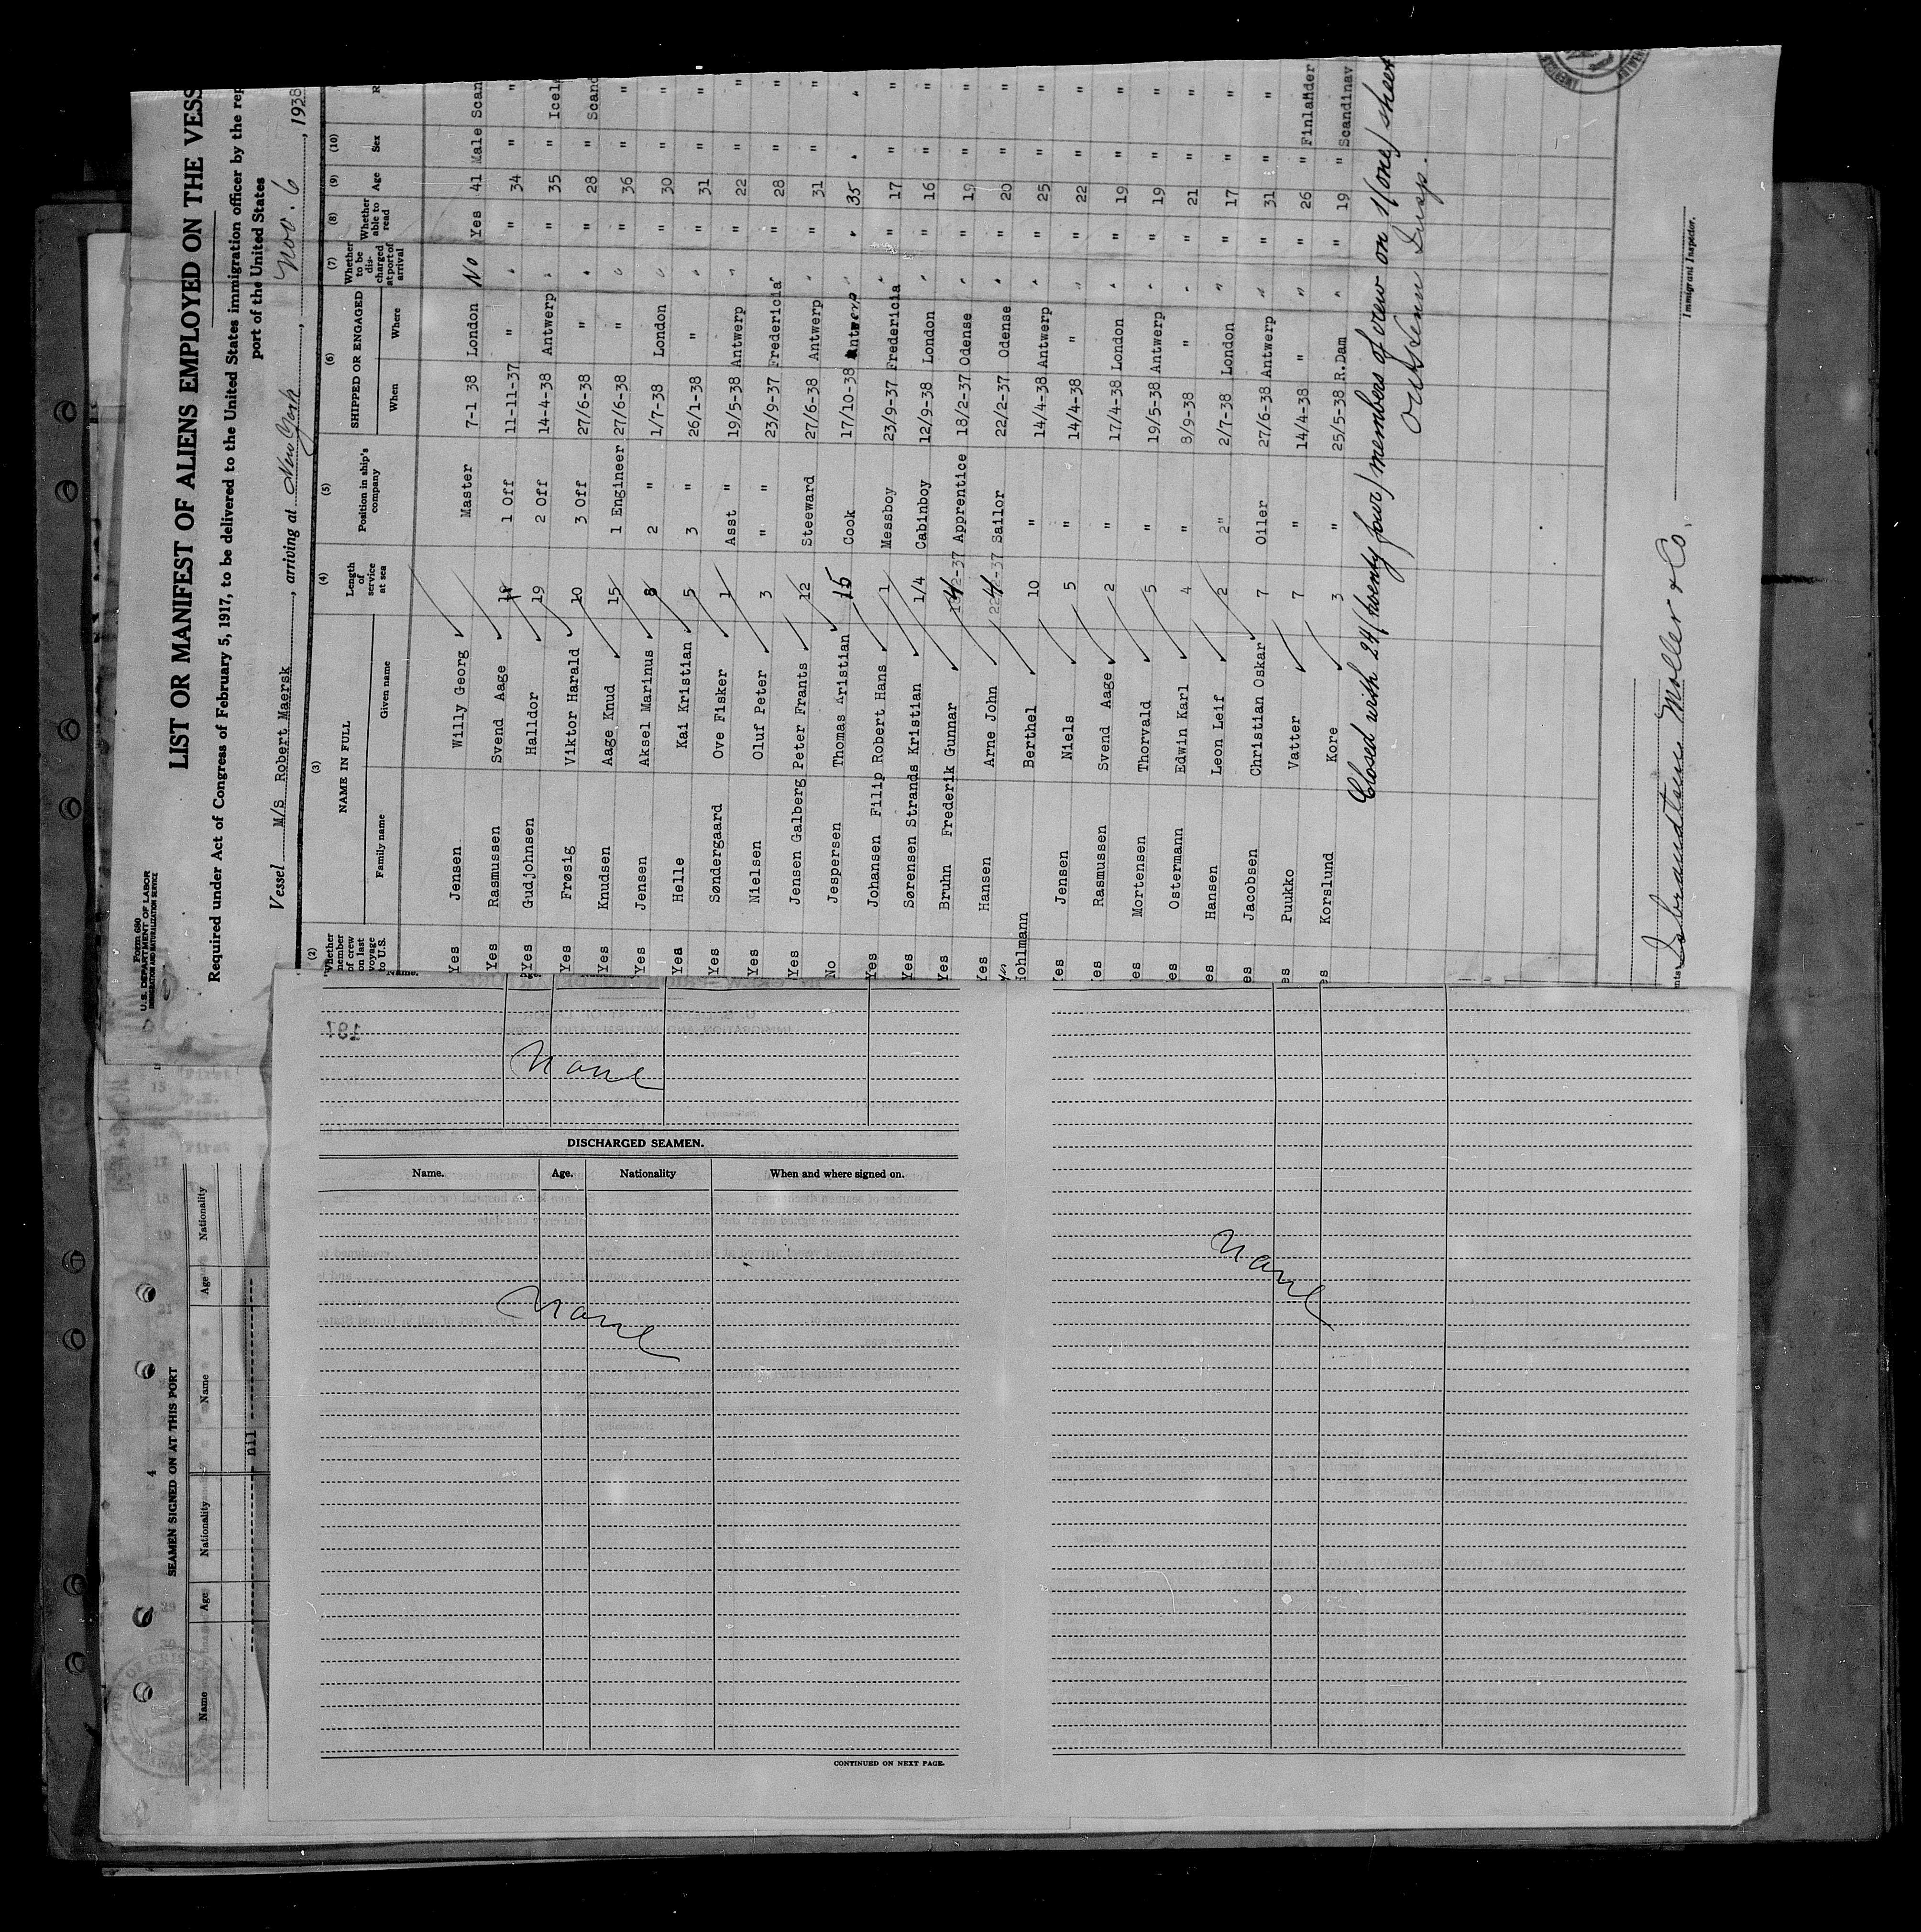 Form 680
U. S. DEPARTMENT OF LABOR
IMMIGRATION AND NATURALIZATION SERVICE
LIST OR MANIFEST OF ALIENS EMPLOYED ON THE VESS
Required under Act of Congress of February 5, 1917, to be delivered to the United States immigration officer by the rep
port of the United States
Vessel M/s Robert Maersk, arriving at New York, Nov. 6, 1938
(2) (3) (4) (5) (6) (7) (8) (9) (10)
Whether member of crew on last voyage to U.S. NAME IN FULL Family name Given name Length of service at sea Position in ship's company SHIPPED OR ENGAGED When Where Whether to be discharged at port of arrival Whether able to read Age Sex R
Yes Jensen Willy Georg Master 7-1 38 London No Yes 41 Male Scan
Yes Rasmussen Svend Aage 1 Off 11-11-37 " " " 34 " "
Yes Gudjohnsen Halldor 19 2 Off 14-4-38 Antwerp " " 35 " Icel
Yes Frøsig Viktor Harald 10 3 Off 27/6-38 " " " 28 " Scand
Yes Knudsen Aage Knud 15 1 Engineer 27/6-38 " " " 36 " "
Yes Jensen Aksel Marinus 8 2 " 1/7-38 London " " 30 " "
Yes Helle Kai Kristian 5 3 " 26/1-38 " " " 31 " "
Yes Søndergaard Ove Fisker 1 Asst " 19/5-38 Antwerp " " 22 " "
Yes Nielsen Oluf Peter 3 " " 23/9-37 Fredericia " " 28 " "
Yes Jensen Galberg Peter Frants 12 Steeward 27/6-38 Antwerp " " 31 " "
No Jespersen Thomas Kristian 15 Cook 17/10-38 Antwerp " " 35 " "
Yes Johansen Filip Robert Hans 1 Messboy 23/9-37 Fredericia " " 17 " "
Yes Sørensen Strands Kristian 1/4 Cabinboy 12/9-38 London " " 16 " "
Yes Bruhn Frederik Gunnar Apprentice 18/2-37 Odense " " 19 " "
Yes Hansen Arne John 4 Sailor 22/2-37 Odense " " 20 " "
yes Hohlmann Berthel 10 " 14/4-38 Antwerp " " 25 " "
Yes Jensen Niels 5 " 14/4-38 " " " 22 " "
es Rasmussen Svend Aage 2 " 17/4-38 London " " 19 " "
es Mortensen Thorvald 5 " 19/5-38 Antwerp " " 19 " "
es Ostermann Edwin Karl 4 " 8/9-38 " " " 21 " "
es Hansen Leon Leif 2 2" 2/7-38 London " " 17 " "
es Jacobsen Christian Oskar 7 Oiler 27/6-38 Antwerp " " 31 " "
es Puukko Vatter 7 " 14/4-38 " " " 26 " Finlander
es Korslund Kore 3 " 25/5-38 R.Dam " " 19 " Scandinav
Closed with 24 (twenty four) members of crew on 1 (one) sheet
Immigrant Inspector.
Isbrandtsen Moller & Co.
None
DISCHARGED SEAMEN.
Name. Age. Nationality When and where signed on.
None
CONTINUED ON NEXT PAGE.
None
SEAMEN SIGNED ON AT THIS PORT
Name Age Nationality Name Age Nationality
nil